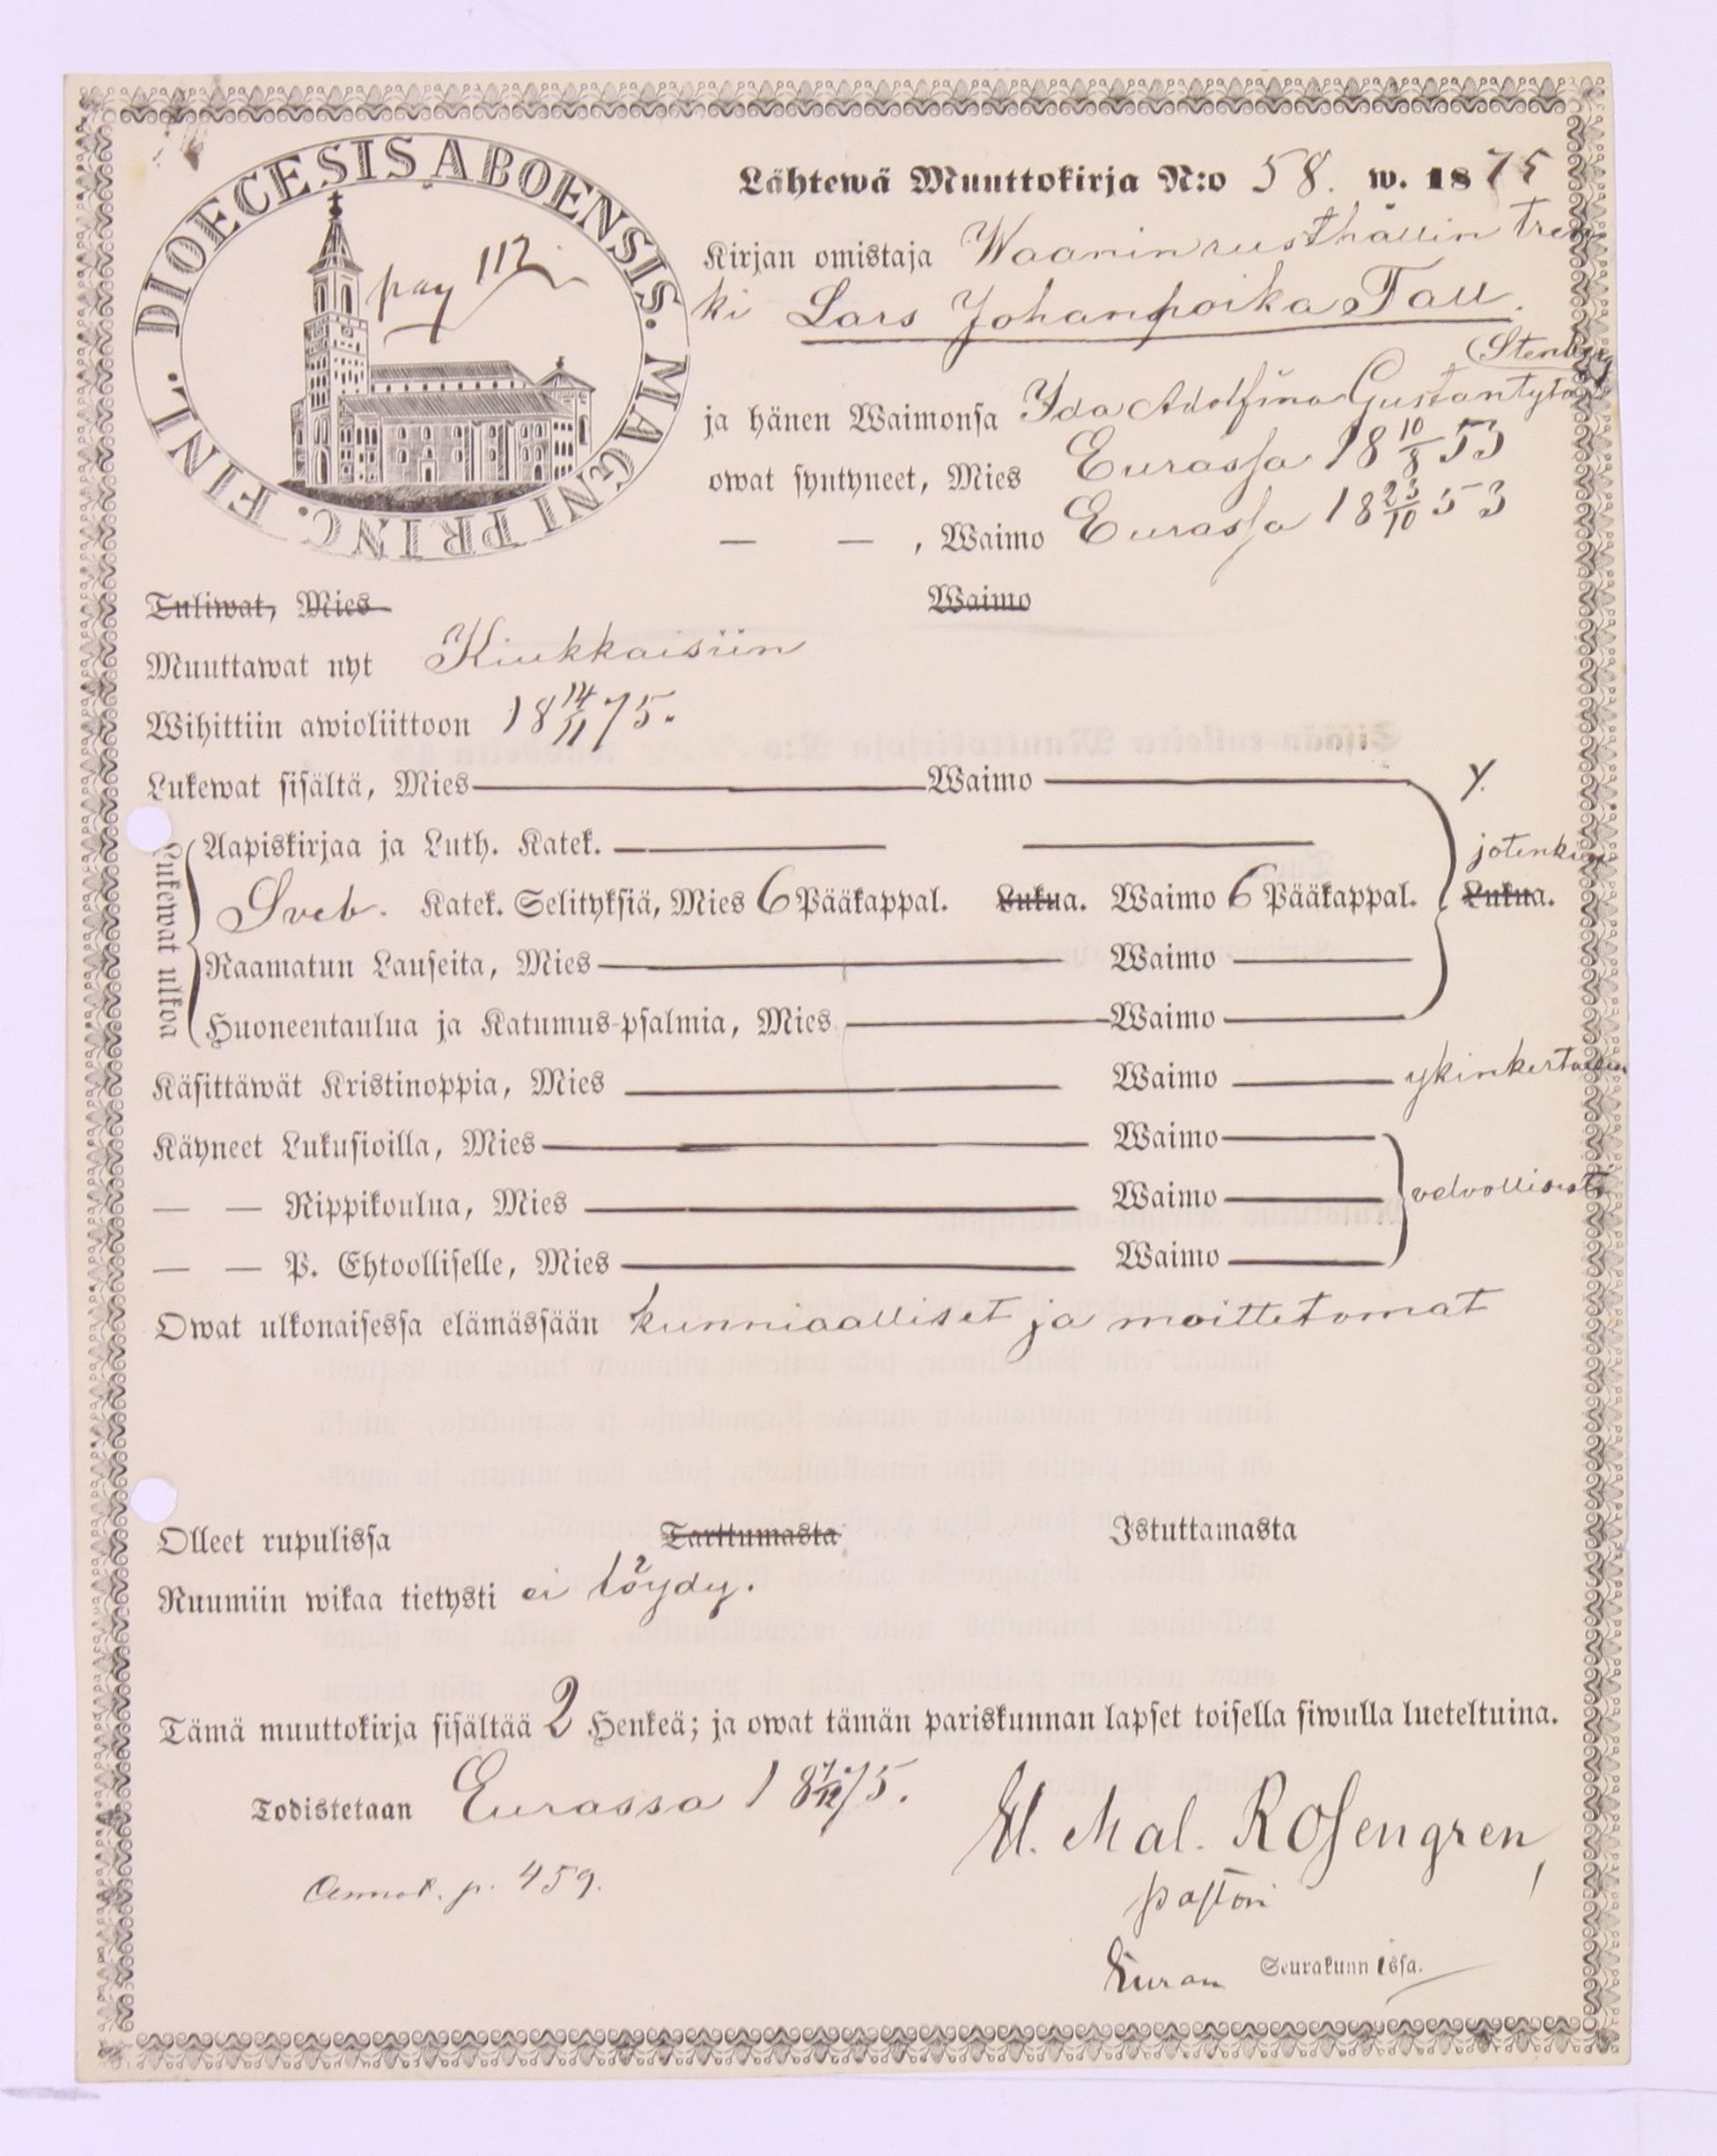 DIOECESIS ABOENSIS. MAGNI PRINC. FINL.
pag 112
Lähtewä Muuttokirja N:o 58. w. 1875
Kirjan omistaja Waanin rusthållin tren
ki Lars Johanpoika Tall.
(Stenberg
ja hänen Waimonsa Ida Adolfina Gustantytär
owat syntyneet, Mies Eurassa 18 10/8 53
— — , Waimo Eurassa 18 23/10 53
Tuliwat, Mies Waimo
Muuttawat nyt Kiukkaisiin
Wihittiin awioliittoon 18 14/11 75.
Lukewat sisältä, Mies Waimo y.
Lukewat ulkoa
Aapiskirjaa ja Luth. Katek. jotenkin
Sveb. Katek. Selityksiä, Mies 6 Pääkappal. Lukua. Waimo 6 Pääkappal. Lukua.
Raamatun Lauseita, Mies Waimo
Huoneentaulua ja Katumus-psalmia, Mies Waimo
Käsittäwät Kristinoppia, Mies Waimo ykinkertaisen
Käyneet Lukusioilla, Mies Waimo
— — Rippikoulua, Mies Waimo velvollisesti
— — P. Ehtoolliselle, Mies Waimo
Owat ulkonaisessa elämässään kunniaalliset ja moittetomat
Olleet rupulissa Tarttumasta Istuttamasta
Ruumiin wikaa tietysti ei löydy.
Tämä muuttokirja sisältää 2 Henkeä; ja owat tämän pariskunnan lapset toisella siwulla lueteltuina.
Todistetaan Eurassa 18 7/12 75.
Mal. Rosengren,
Annot. p. 459.
pastori
Euran Seurakunnissa.